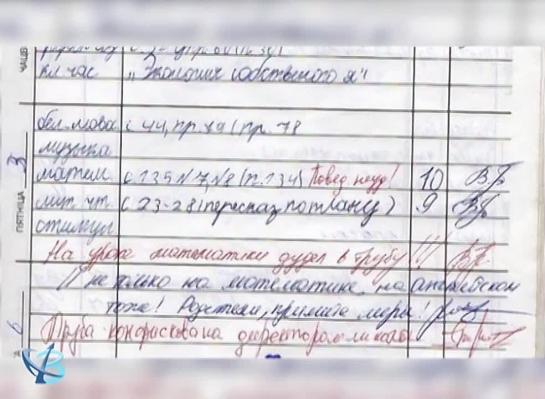 кл. час „Экология собственного я"
ЧЕТВ
бел. мова с 44, пр. 79 (пр. 78
музыка
матем. с 135 №7, №8 (п. 134) Повед неуд! 10
ПЯТНИЦА
лит. чт. с 23-28 (пересказ по плану) 9
стимул
На уроке математики дудел в трубу!!!
И не только на математике, на английском
тоже! Родители, примите меры!
6
Труба конфискована директором школы